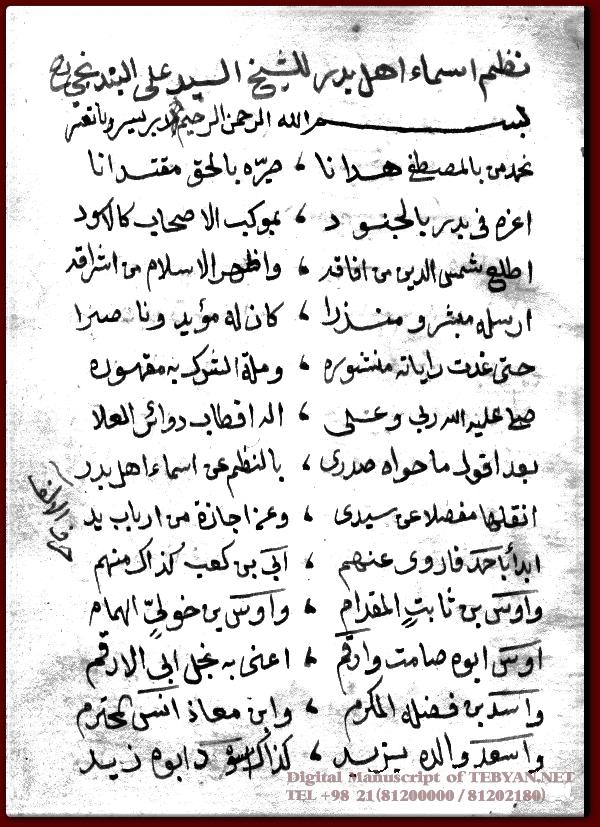 نظم اسماء اهل بدر للشيخ السيد علي البندنيجي رح
بسم الله الرحمن الرحيم رب يسر ولا تعسر
نحمد من بالمصطفى هدانا ، صيّره بالحق مقتدانا
اعزه في بدر بالجنود ، بموكب الاصحاب كالاسود
اطلع شمس الدين من افاقه ، واظهر الاسلام من اشراقه
ارسله مبشرا ومنذرا ، كان له مؤيدا وناصرا
حتى غدت راياته منشوره ، وملة الشرك به مقهوره
صلى عليه الله ربي وعلى ، اله اقطاب دوائر العلا
بعد اقول ما حواه صدري ، بالنظم عن اسماء اهل بدر
انقلها مفصلا عن سيدي ، وعن اجازة من ارباب يد
حرف الالف
ابدأ باحمد فاروى عنهم ، ابي بن كعب كذاك منهم
واوس بن ثابت المقدام ، واوس بن خولي الهمام
اوس ابوه صامت وارقم ، اعنى به نجل ابي الارقم
واسد بن فضله المكرم ، وابن معاذ انس المحترم
واسعد والده يزيد ، كذاك اسود ابوه زيد
Digital Manuscript of TEBYAN.NET
TEL +98 21(81200000 / 81202180)